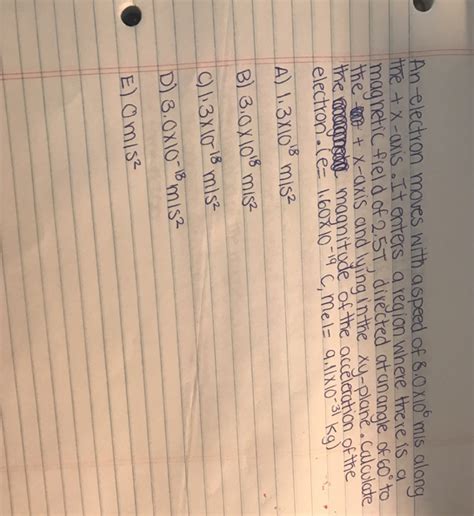 An electron moves with a speed of 8.0x10⁶ m/s along
the + x-axis. It enters a region where there is a
magnetic field of 2.5T, directed at an angle of 60° to
the + x-axis and lying in the xy-plane. Calculate
the magnitude of the acceleration of the
electron. (e= 1.60x10⁻¹⁹ C, mel= 9.11x10⁻³¹ kg)
A) 1.3x10¹⁸ m/s²
B) 3.0x10¹⁸ m/s²
C) 1.3x10⁻¹⁸ m/s²
D) 3.0x10⁻¹⁸ m/s²
E) 0 m/s²